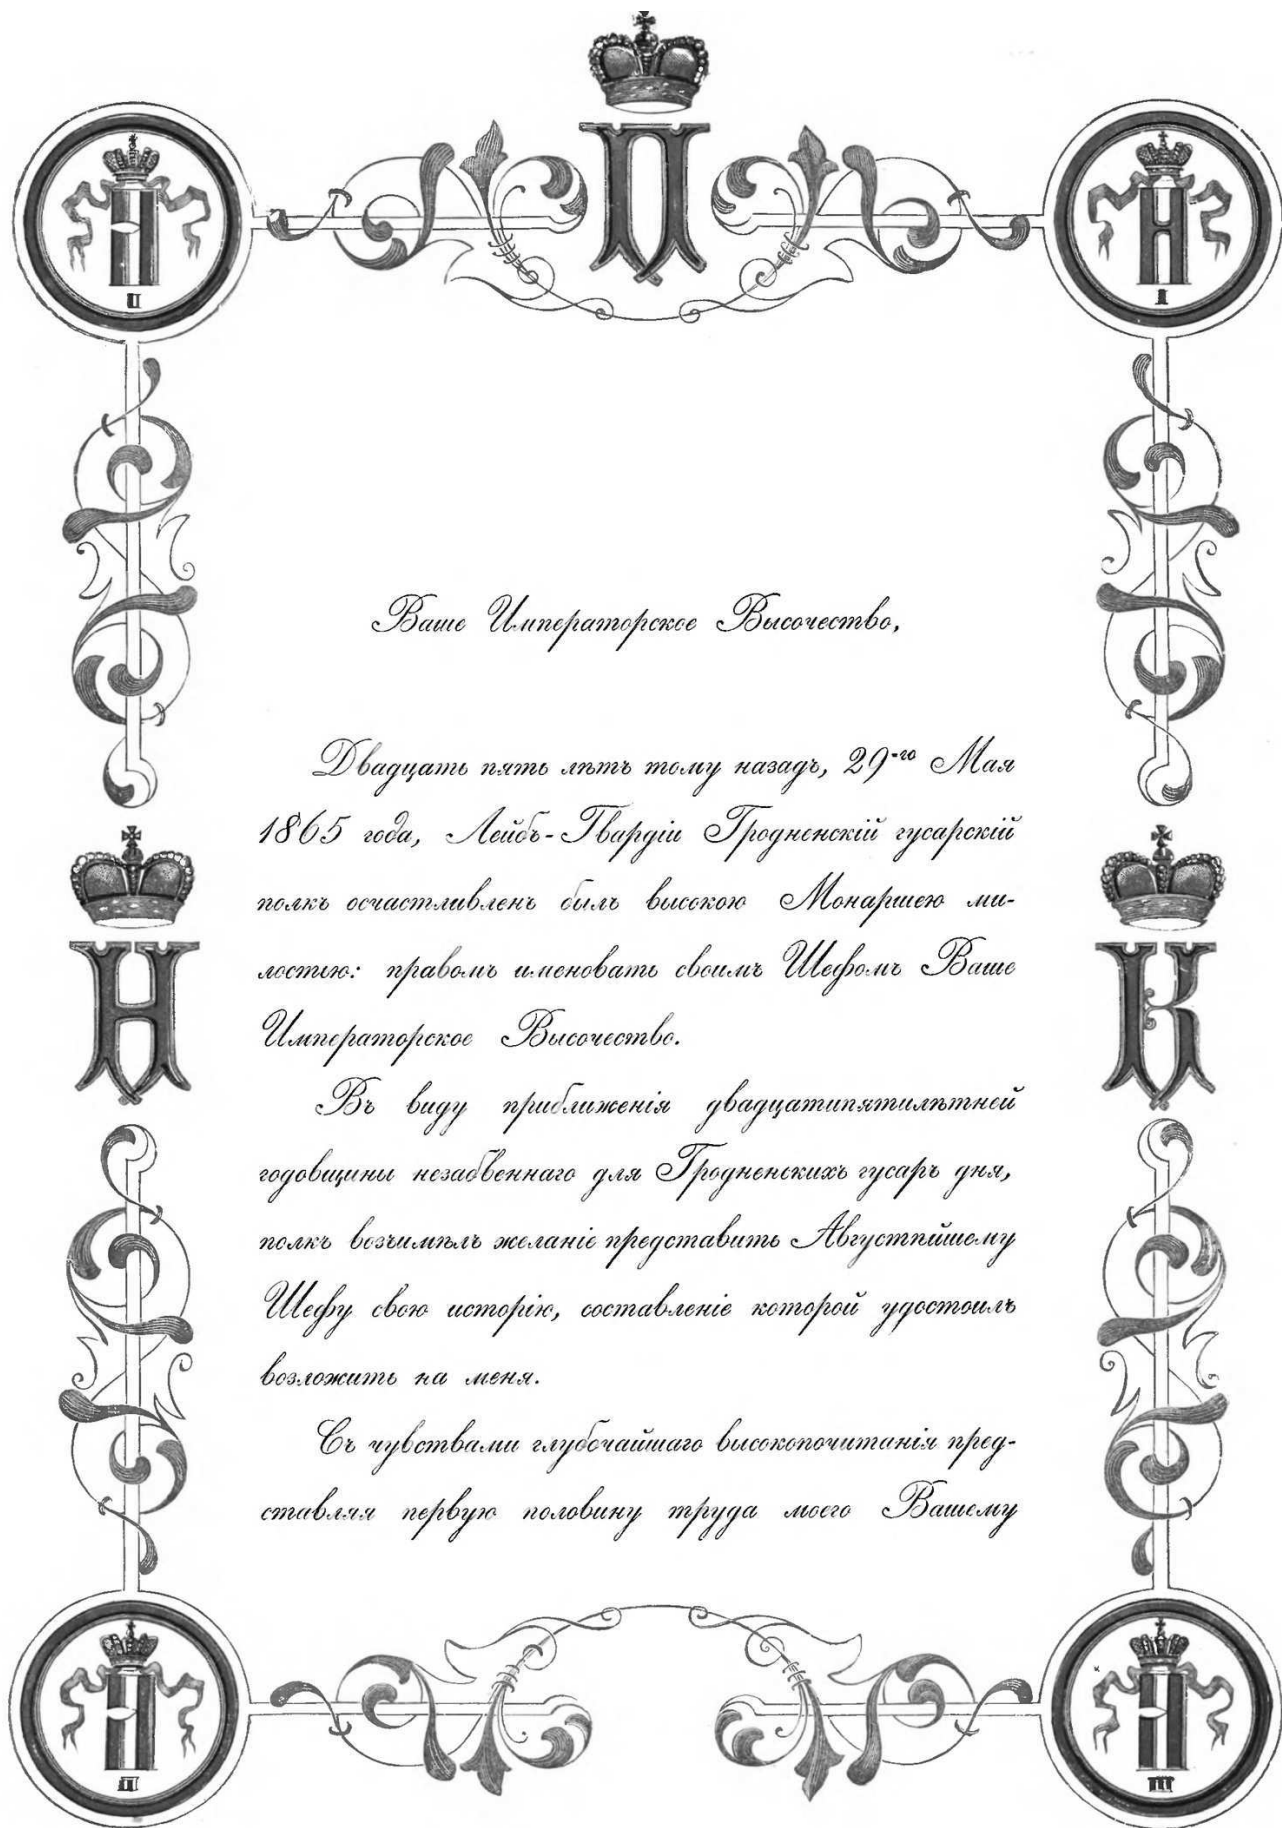 П
Н
I
Ваше Императорское Высочество,
Двадцать пять лѣтъ тому назадъ, 29-го Мая
1865 года, Лейбъ-Гвардіи Гродненскій гусарскій
полкъ осчастливленъ былъ высокою Монаршею ми-
лостью: правомъ именовать своимъ Шефомъ Ваше
Императорское Высочество.
Н
К
Въ виду приближенія двадцатипятилѣтней
годовщины незабвеннаго для Гродненскихъ гусаръ дня,
полкъ возъимѣлъ желаніе представить Августѣйшему
Шефу свою исторію, составленіе которой удостоилъ
возложить на меня.
Съ чувствами глубочайшаго высокопочитанія пред-
ставляя первую половину труда моего Вашему
III